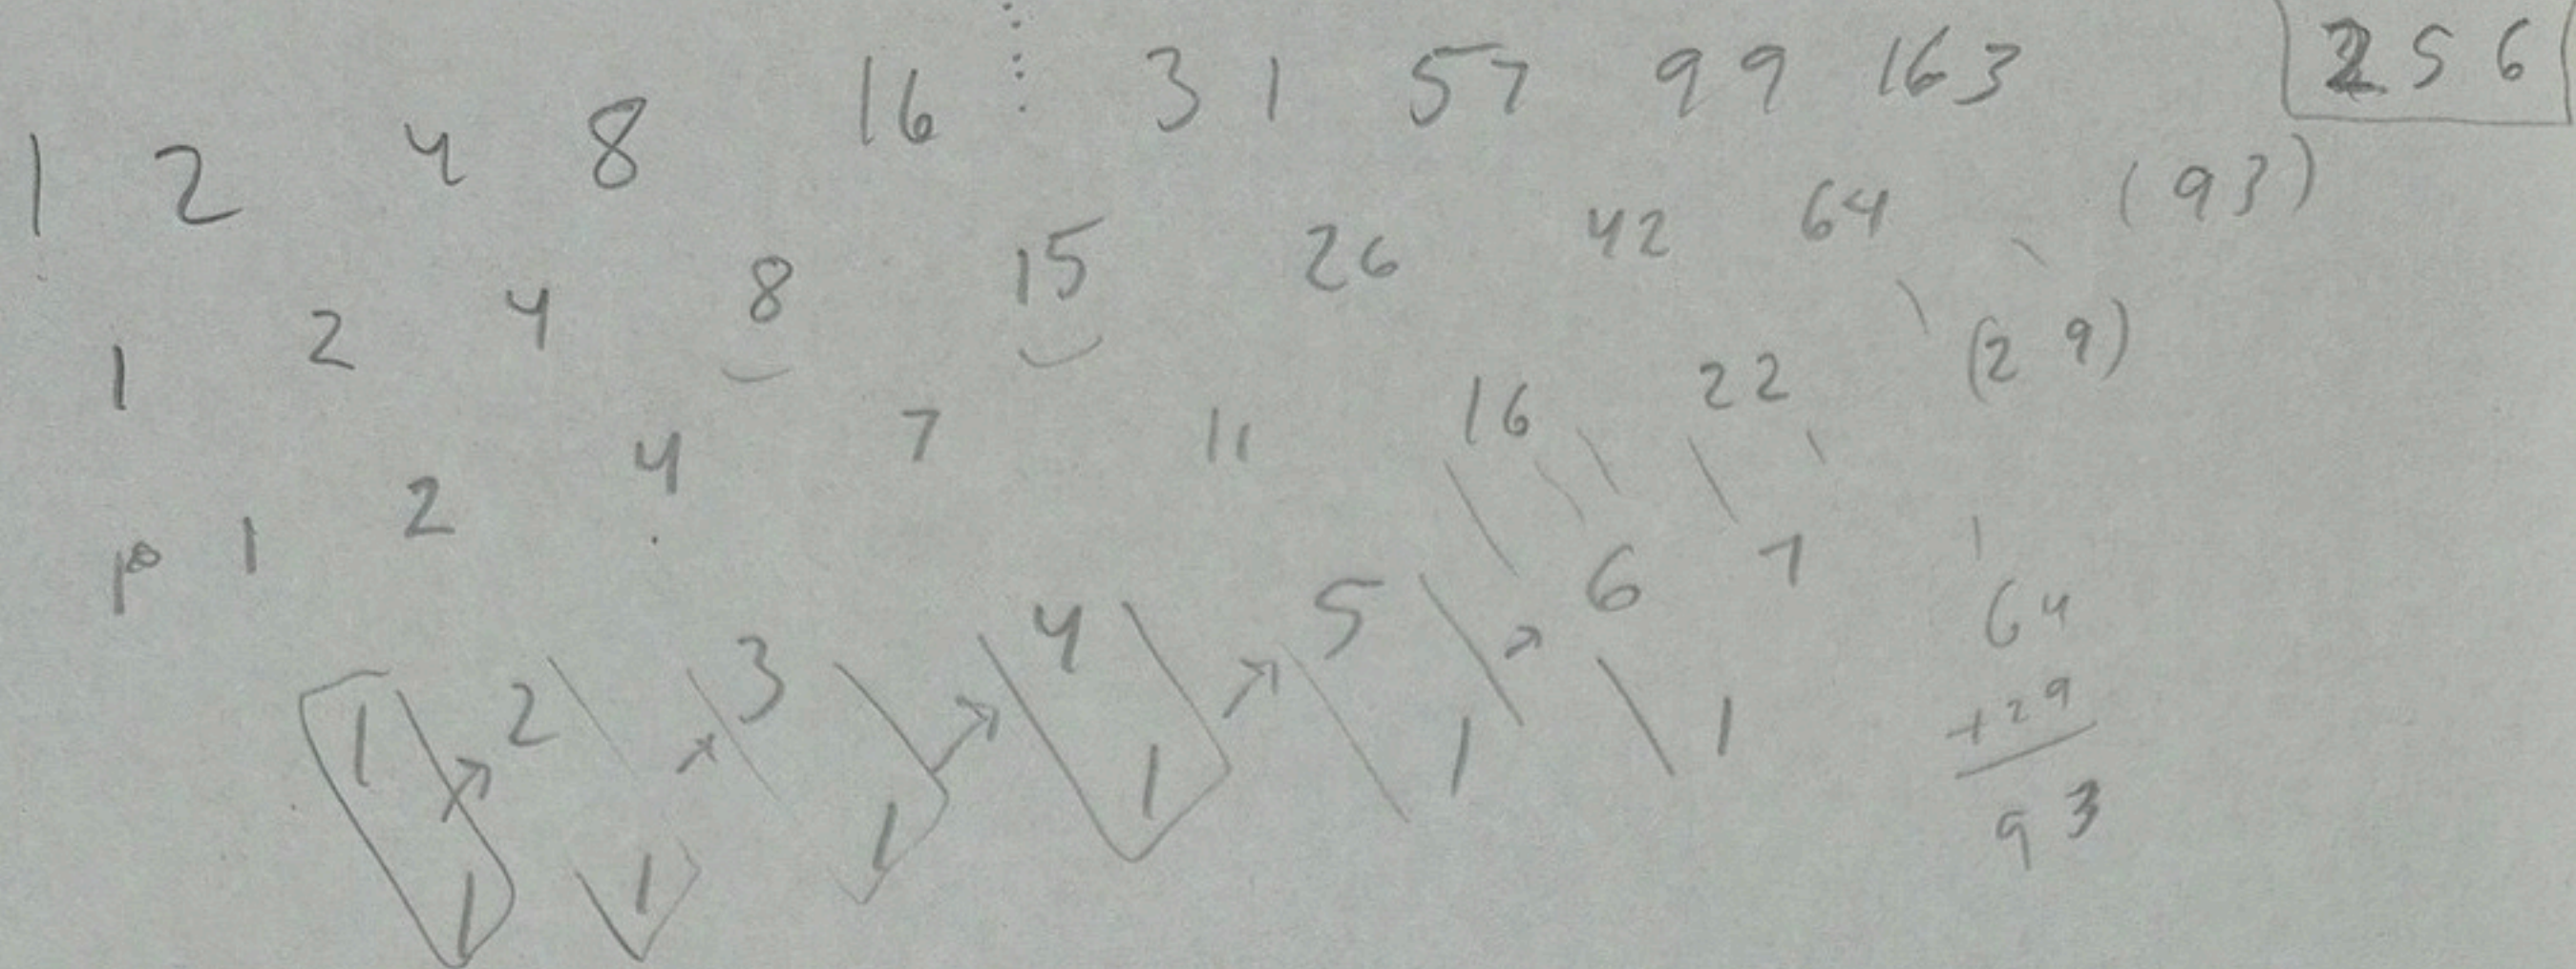 1 2 4 8 16 31 57 99 163 256
1 2 4 8 15 26 42 64 (93)
1 2 4 7 11 16 22 (29)
1 2 3 4 5 6 7
1 1 1 1 1 1
64
+29
93